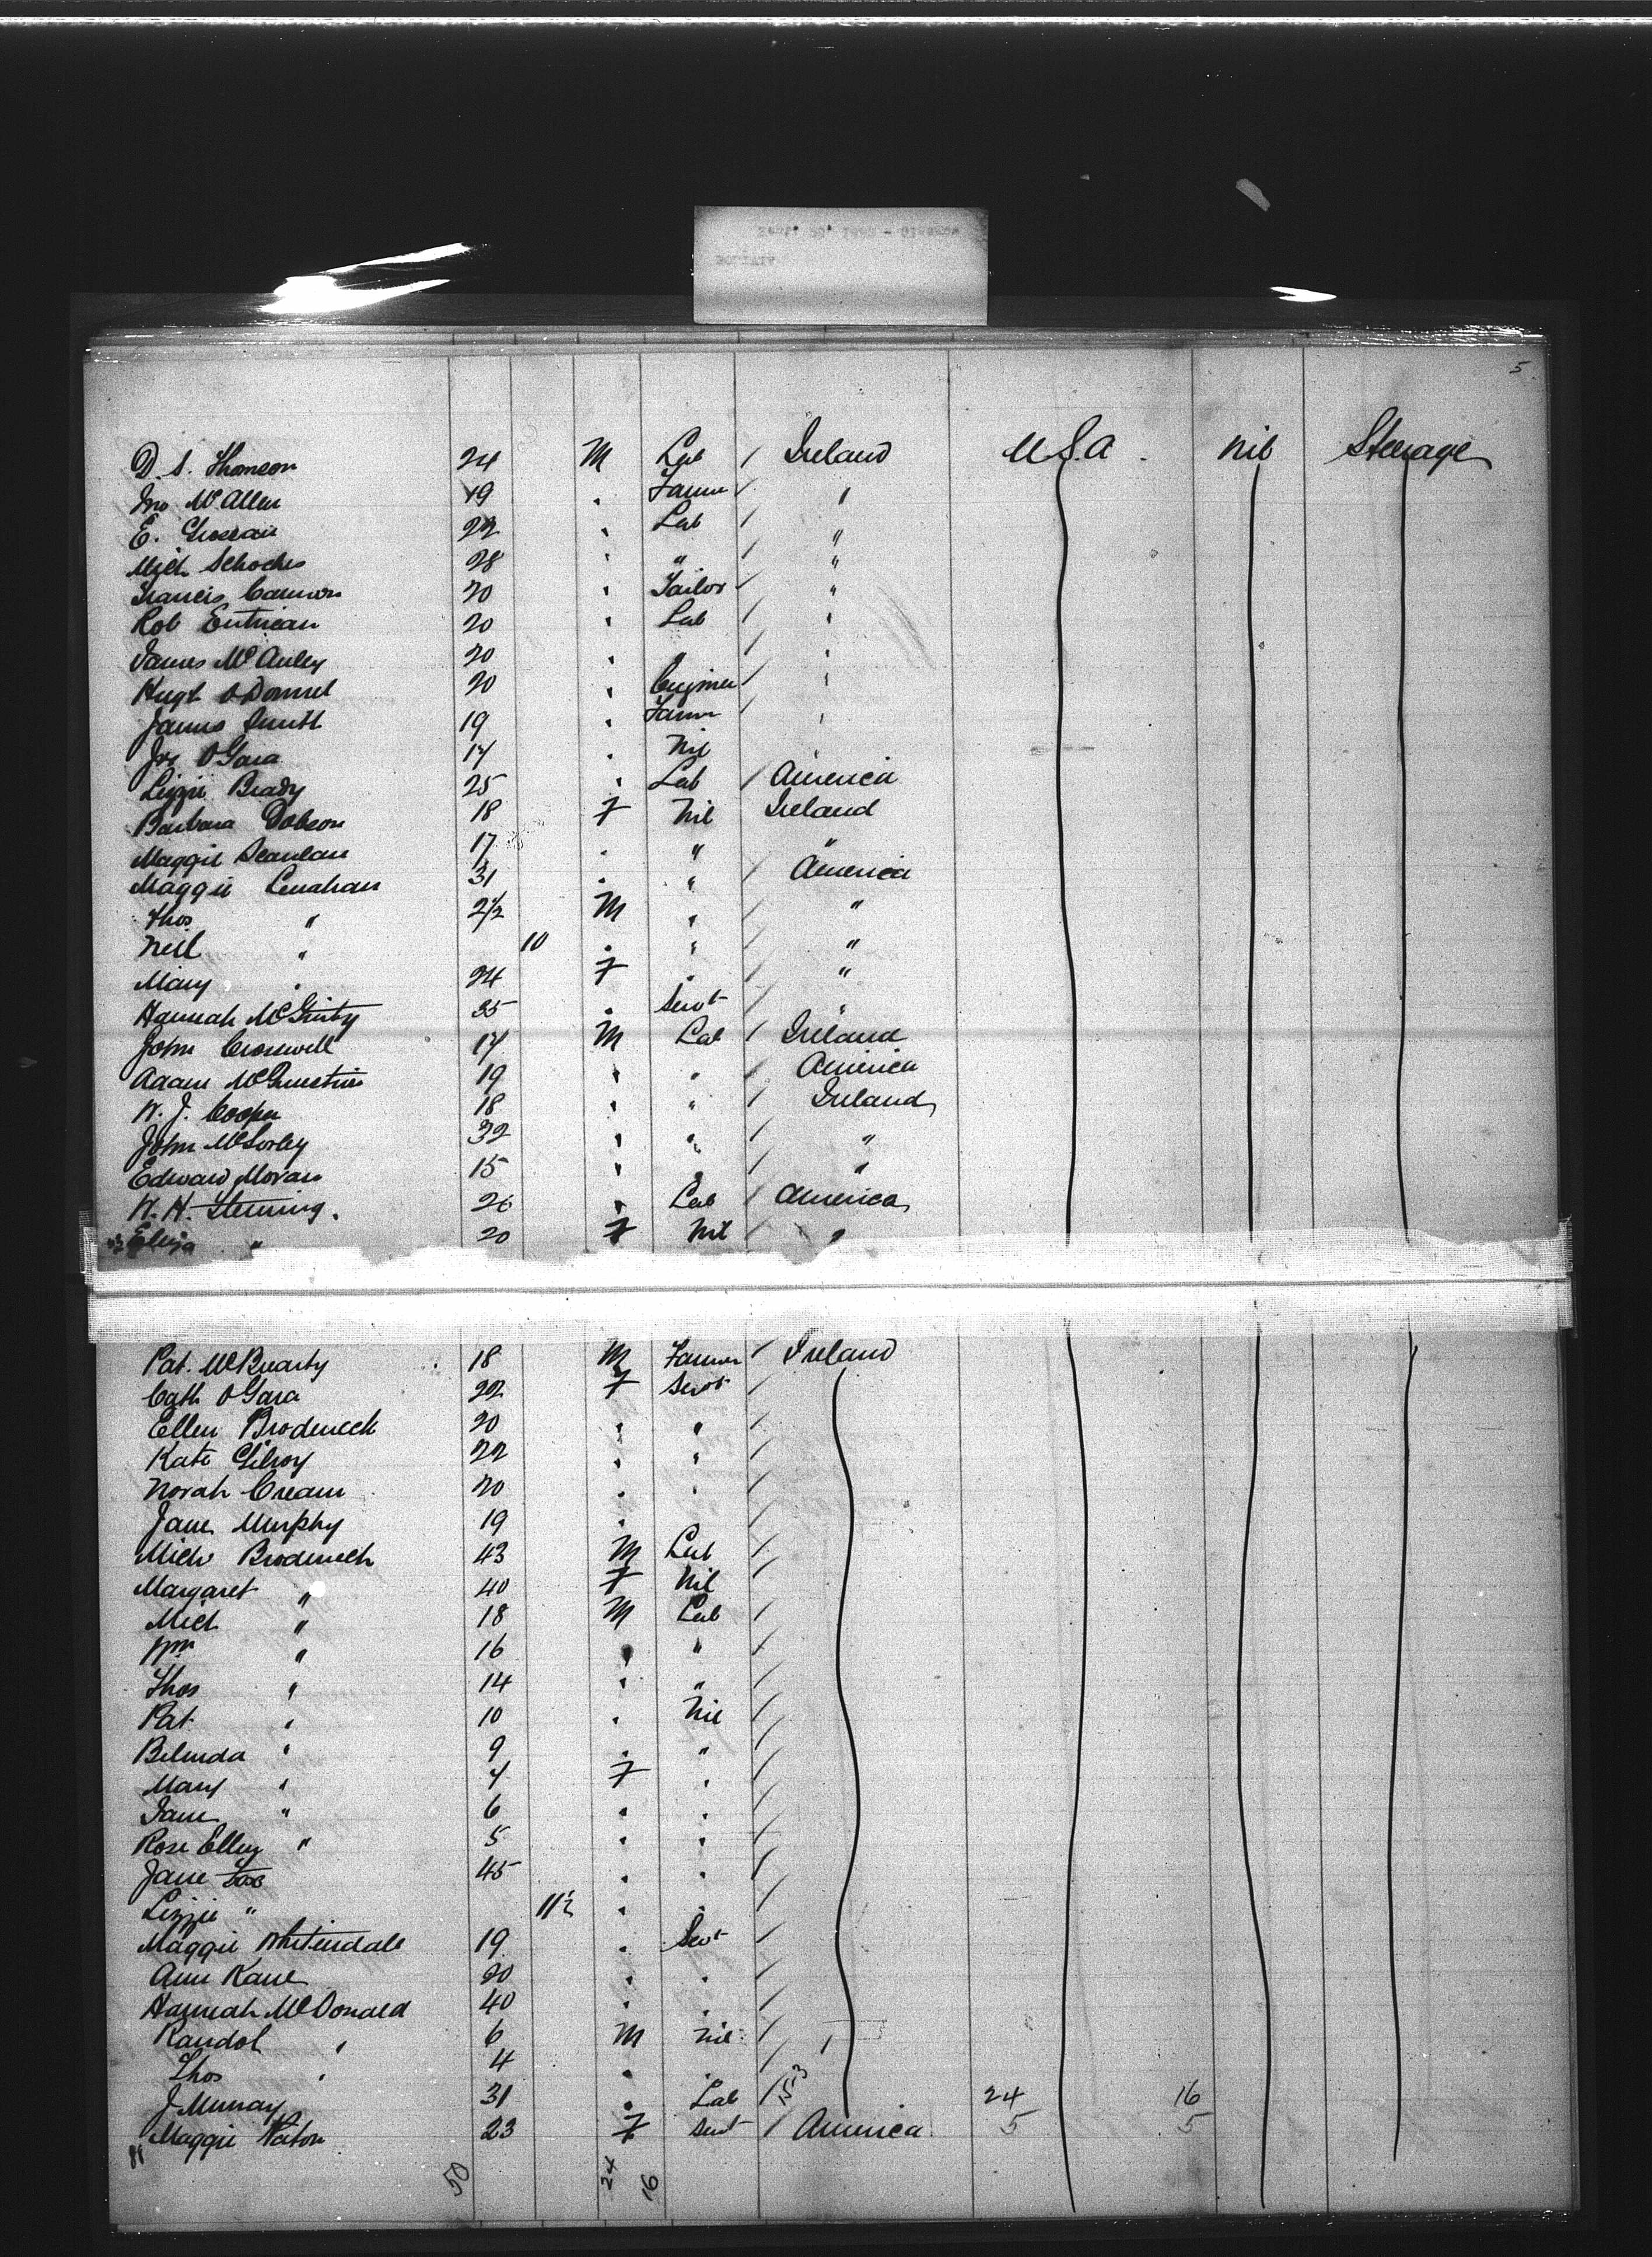 5
D. S. Thomson 24 M Lab / Ireland U.S.A. Nil Steerage
Jno McAllen 19 . Farmer / "
E. 22 . Lab / "
Mich 28 . " / "
Francis Cannon 20 . Tailor / "
Rob Entrican 20 . Lab / "
James McAuley 20 . " / "
Hugh O'Donnel 20 . / "
James Smith 19 . Farmr / "
Jas O'Gara 17 . Nil
Lizzie Brady 25 . Lab / America
Barbara Dobson 18 F Nil Ireland
Maggie Scanlan 17 . " "
Maggie Lenahan 31 . " / America
Thos " 2½ M " / "
Neil " 10 . " / "
Mary " 24 F . / "
Hannah McGinty 35 . Servt / "
John Crosswell 17 M Lab / Ireland
Adam 19 " " / America
W. J. Cooper 18 " " / Ireland
John McSorley 32 " " / "
Edward Moran 15 " " / "
W. H. Fleming. 26 . Lab / America
Eliza " 20 F Nil / "
Pat. McBrearty 18 M Farmer / Ireland
Cath O'Gara 22 F Servt /
Ellen Broderick 20 " " /
Kate Gilroy 22 " " /
Norah Cream 20 . " /
Jane Murphy 19 . /
Mich Broderick 43 M Lab /
Margaret " 40 F Nil /
Mich " 18 M Lab /
Wm " 16 " " /
Thos " 14 " " /
Pat " 10 . Nil /
Belinda " 9 . " /
Mary " 7 F . /
Jane " 6 " . /
Rose Ellen " 5 " " /
Jane Fox 45 . . /
Lizzie " 11½ . . /
Maggie Whitendale 19 . Servt /
Ann Kane 20 . . /
Hannah McDonald 40 . . /
Randol " 6 M Nil /
Thos " 4 . . /
J Murray 31 . Lab / 24 16
Maggie 23 F Servt / America 5 5
50 24 16